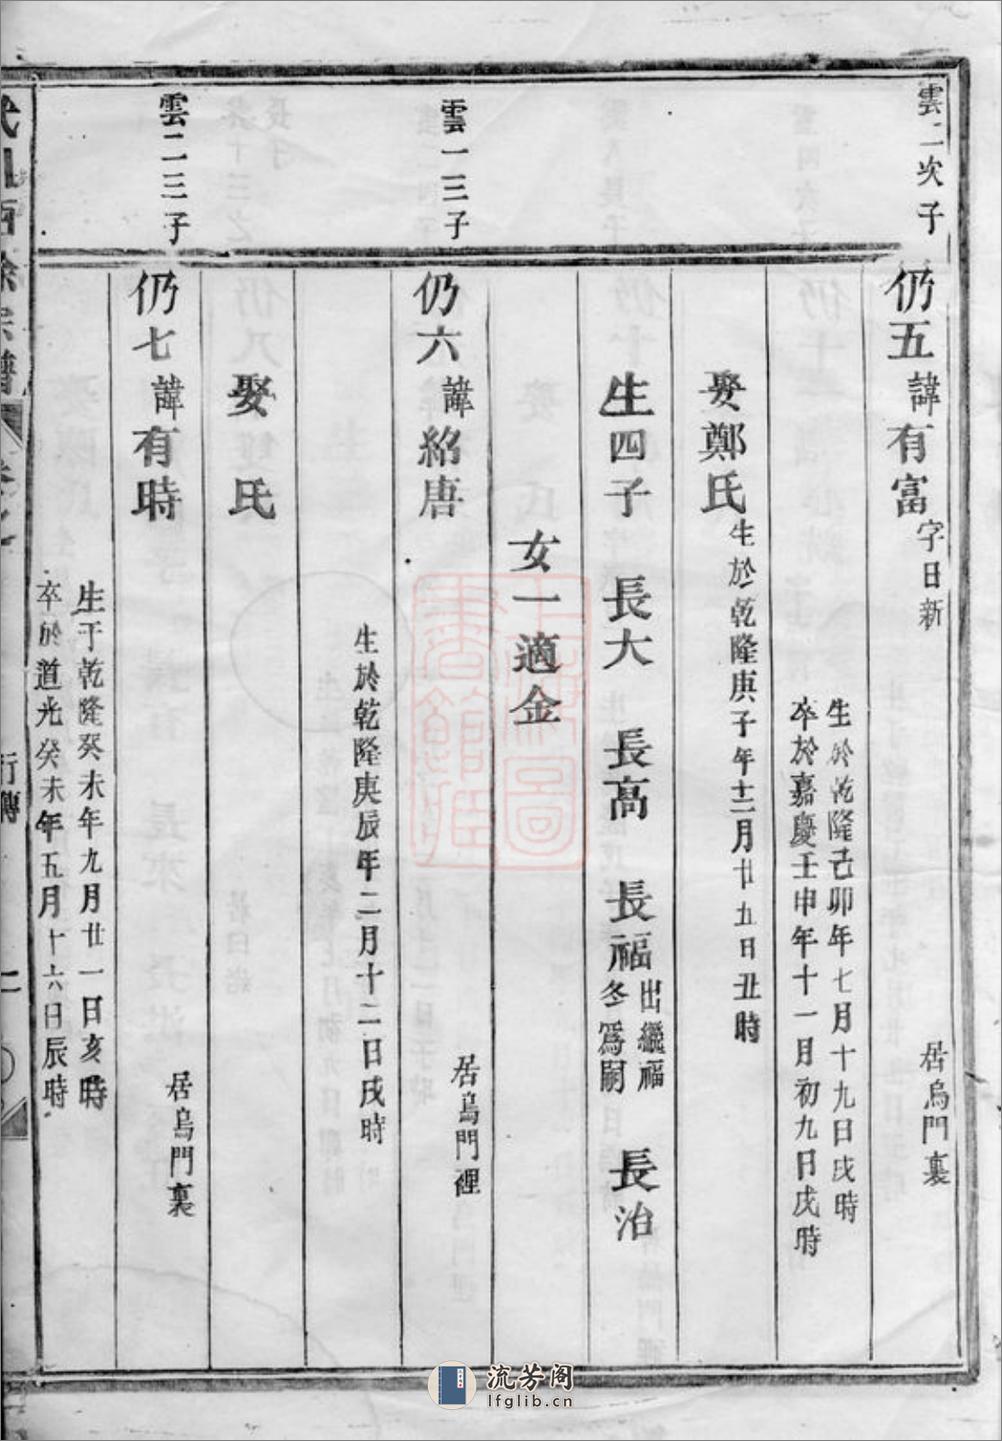 雲二次子
仍五諱有富字日新 居烏門裏
生於乾隆己卯年七月十九日戌時
卒於嘉慶壬申年十一月初九日戌時
娶鄭氏生於乾隆庚子年十二月廿五日丑時
生四子 長大 長高 長福出繼福冬爲嗣 長治
女一適金
雲一三子
仍六諱紹唐 居烏門裡
生於乾隆庚辰年二月十二日戌時
娶 氏
雲二三子
仍七諱有時 居烏門裏
生于乾隆癸未年九月廿一日亥時
卒於道光癸未年五月十六日辰時
余宗譜
行傳
上海圖書館藏
流芳阁
lfglib.cn